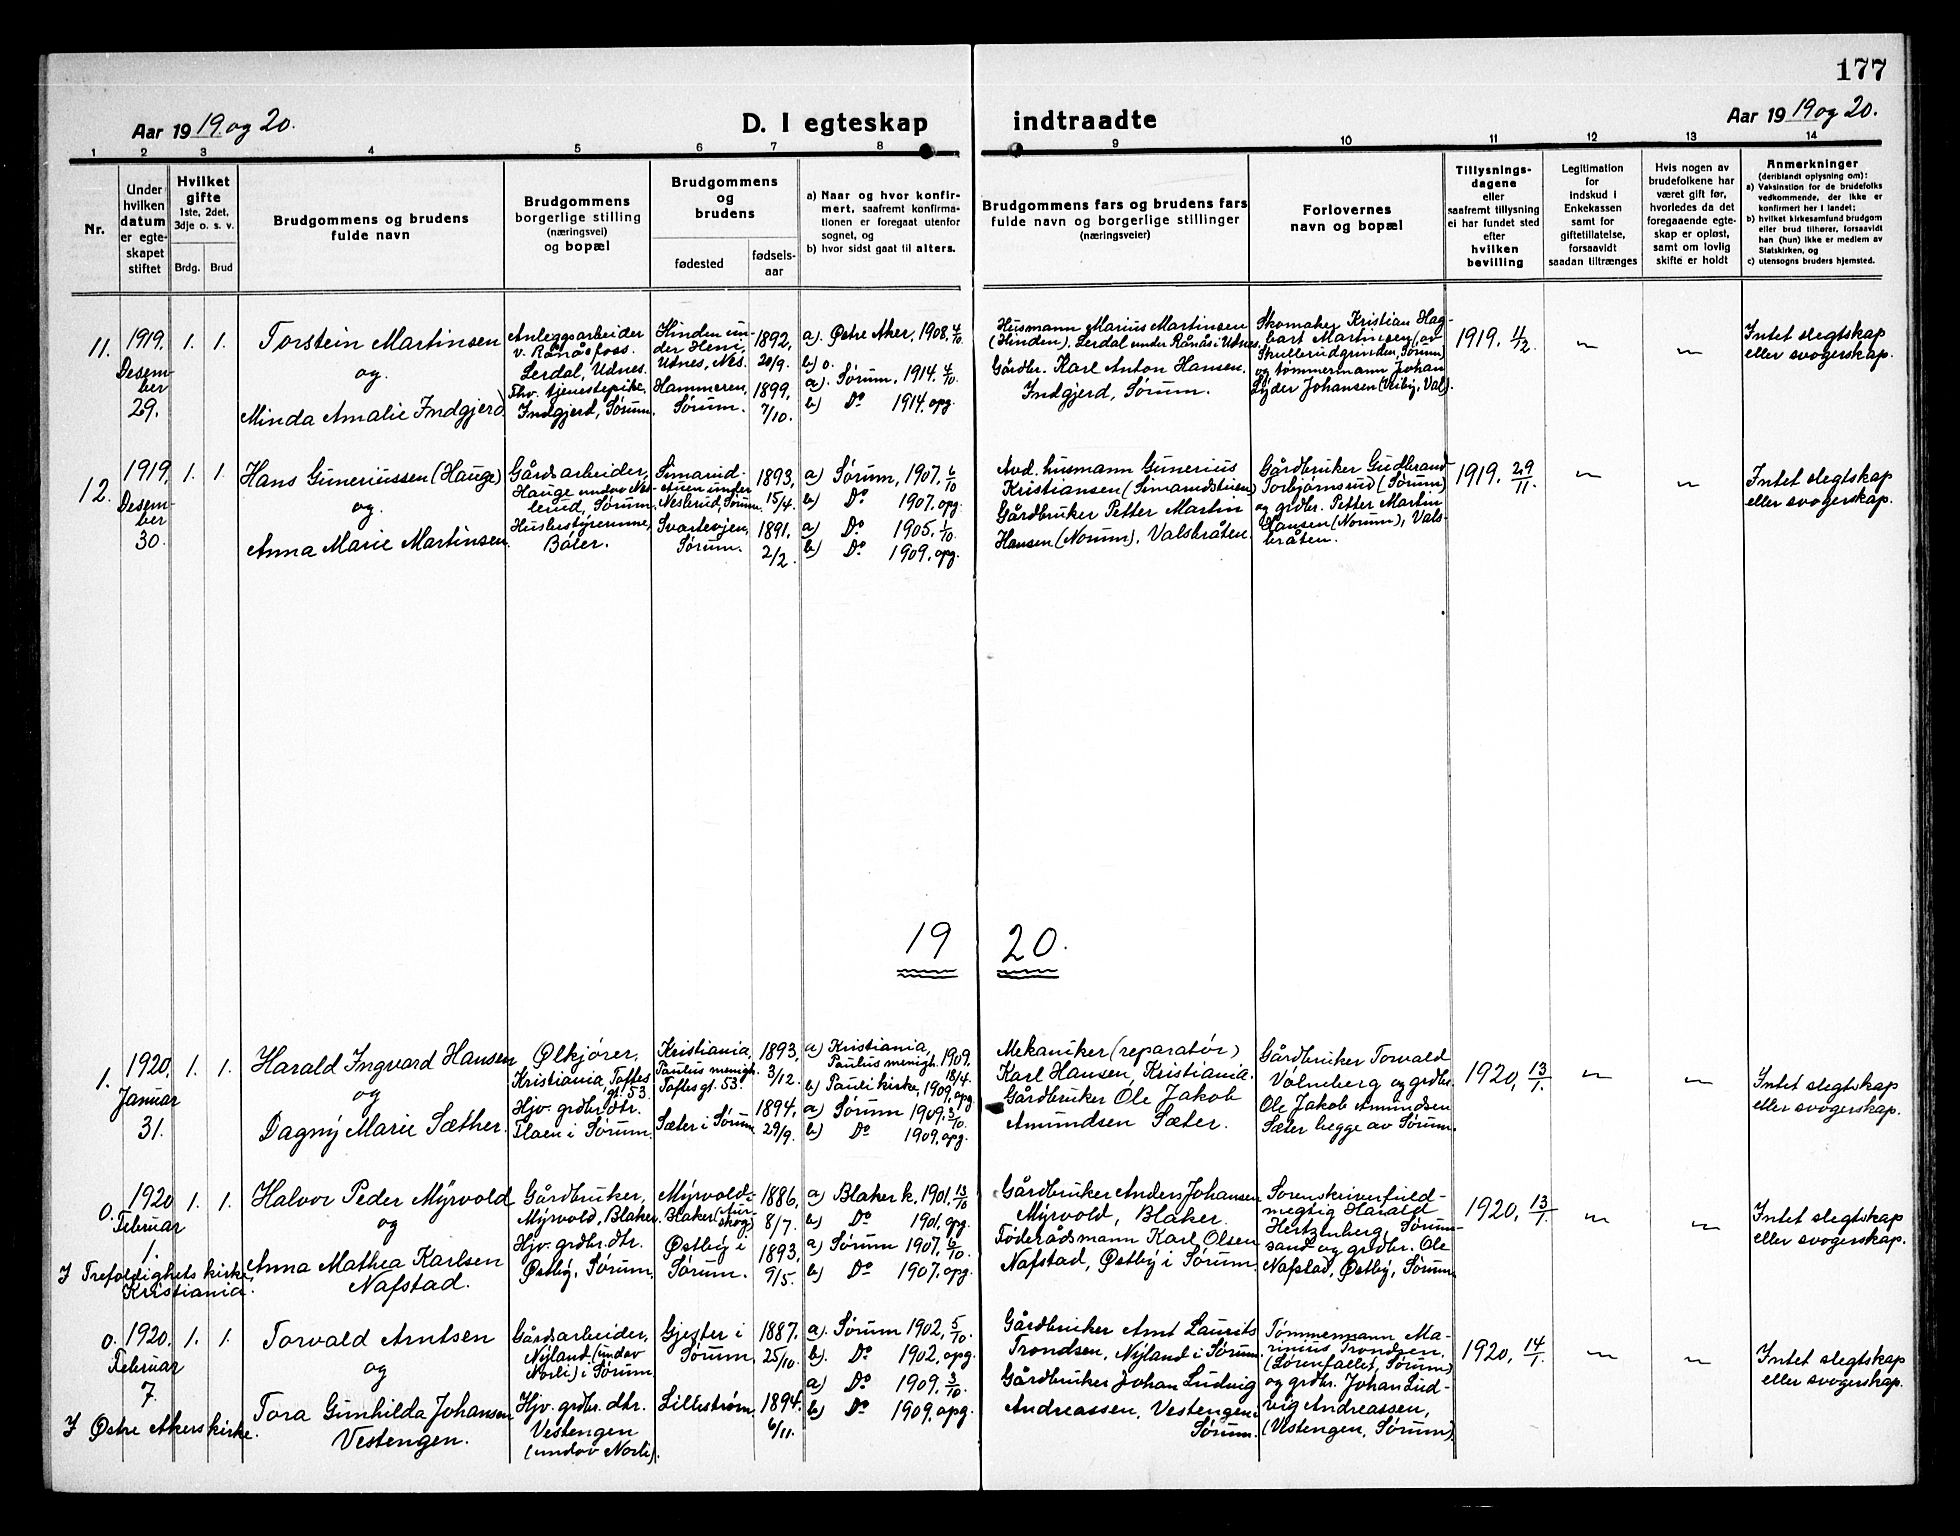 177
Aar 1919 og 20.
D. I egteskap indtraadte
Aar 1919 og 20.
1 2 3 4 5 6 7 8 9 10 11 12 13 14
Nr.
Under hvilken datum er egteskapet stiftet
Hvilket gifte
1ste, 2det, 3dje o. s. v.
Brdg. Brud
Brudgommens og brudens
fulde navn
Brudgommens
borgerlige stilling
(næringsvei)
og bopæl
Brudgommens
og
brudens
fødested
fødsels-
aar
a) Naar og hvor konfir-
mert, saafremt konfirma-
tionen er foregaat utenfor
sognet, og
b) hvor sidst gaat til alters.
Brudgommens fars og brudens fars
fulde navn og borgerlige stillinger
(næringsveier)
Forlovernes
navn og bopæl
Tillysnings-
dagene
eller
saafremt tillysning
ei har fundet sted
efter
hvilken
bevilling
Legitimation
for
indskud i
Enkekassen
samt for
giftetillatelse,
forsaavidt
saadan tiltrænges
Hvis nogen av
brudefolkene har
været gift før,
hvorledes da det
foregaaende egte-
skap er opløst,
samt om lovlig
skifte er holdt
Anmerkninger
(deriblandt oplysning om):
a) Vaksination for de brudefolks
vedkommende, der ikke er
konfirmert her i landet;
b) hvilket kirkesamfund brudgom
eller brud tilhører, forsaavidt
han (hun) ikke er medlem av
Statskirken, og
c) utensogns bruders hjemsted.
11.
1919.
Desem-
ber
29.
1. 1.
Torstein Martinsen
og
Minda Amalie Indgjerd
Anleggsarbeider
v. Rånåsfoss.
Lerdal, Udnes.
Thv. tjenestepike
Indgjerd, Sørum.
Hinden un-
der Heni
Udnes, Nes.
Hammeren,
Sørum.
1892,
20/9.
1899,
7/10.
a) Østre Aker, 1908. 4/10
b) o.
a). Sørum, 1914. 4/10
b) Do 1914. opg.
Husmann Marius Martinsen
(Hinden), Lerdal under Rånås i Udnes.
Gårdbr. Karl Anton Hansen,
Indgjerd, Sørum.
Skomaker Kristian Hag-
bart Martinsen (av
Skullerudgrinden, Sørum)
og tømmermann Johan
Lyder Johansen (Veiby, Val).
1919. 4/2.
"
"
Intet slegtskap
eller svogerskap.
12.
1919,
Desem-
ber
30.
1. 1.
Hans Guneriussen (Hauge)
og.
Anna Marie Martinsen.
Gårdsarbeider,
Hauge undav Nes-
lerud, Sørum.
Husbestyrerinne,
Bøler.
Simarud-
stuen under
Nesbrud, Sørum.
Svartevjen,
Sørum.
1893,
15/4.
1891,
2/2.
a) Sørum, 1907. 6/10
b) Do 1907. opg.
a) Do 1905. 1/10
b) Do 1909. opg.
Avd. husmann Gunerius
Kristiansen (Simarudstuen)
Gårdbruker Petter Martin
Hansen (Norum), Valsbråten.
Gårdbruker Gudbrand
Torbjørnsrud (Sørum)
og grdbr. Petter Martin
Hansen (Norum), Vals-
bråten.
1919. 29/11.
"
"
Intet slegtskap
eller svogerskap.
19 20.
1.
1920,
Januar
31.
1. 1.
Harald Ingvard Hansen
og
Dagny Marie Sæther.
Ølkjører,
Kristiania, Toftes
gt. 53.
Hjv. grdbr. dtr.
Flaen i Sørum.
Kristiania,
Paulus menigh.
Toftes gt. 53.
Sæter i Sørum
1893,
3/12.
1894,
29/9.
a) Kristiania,
Paulus menigh. 1909.
18/4.
b) Pauli kirke, 1909, opg
a) Sørum 1909. 3/10
b) Do 1909. opg.
Mekaniker (reparatør)
Karl Hansen, Kristiania.
Gårdbruker Ole Jakob
Amundsen Sæter.
Gårdbruker Torvald
Vølneberg og grdbr.
Ole Jakob Amundsen
Sæter begge av Sørum.
1920, 13/1.
"
"
Intet slegtskap
eller svogerskap.
0.
1920
Februar
1.
I Trefoldighets kirke,
Kristiania.
1. 1.
Halvor Peder Myrvold
og
Anna Mathea Karlsen
Nafstad.
Gårdbruker,
Myrvold, Blaker.
Hjv. grdbr. dtr.
Østby, Sørum.
Myrvold i
Blaker (Aur-
skog)
Østby i
Sørum.
1886,
8/7.
1893,
9/5.
a) Blaker k. 1901. 13/10
b) Do 1901, opg.
a) Sørum 1907. 6/10
b) Do 1907. opg.
Gårdbruker Anders Johansen
Myrvold, Blaker.
Føderådsmann Karl Olsen
Nafstad, Østby i Sørum.
Sorenskriverfuld-
megtig Harald
Hertzenberg, Sørum-
sand og grdbr. Ole
Nafstad, Østby, Sørum.
1920, 13/1.
"
"
Intet slegtskap
eller svogerskap.
0.
1920.
Februar
7.
I Østre Akers kirke.
1. 1.
Torvald Arntsen
og
Tora Gunhilda Johansen
Vestengen.
Gårdsarbeider,
Nyland (undav
Norli) i Sørum
Hjv. grdbr. dtr.
Vestengen
(undav Norli).
Gjester i
Sørum,
Lillestrøm,
1887.
25/10.
1894.
6/11.
a). Sørum 1902, 5/10.
b). Do 1902, opg.
a) Do 1909. 3/10
b) Do 1909. opg.
Gårdbruker Arnt Laurits
Trondsen, Nyland i Sørum.
Gårdbruker Johan Ludvig
Andreassen, Vestengen i
Sørum.
Tømmermann Ma-
rinius Trondsen,
(Sørenfallet, Sørum)
og grdbr. Johan Lud-
vig Andreassen,
(Vestengen, Sørum).
1920, 14/1.
"
"
Intet slegtskap
eller svogerskap.